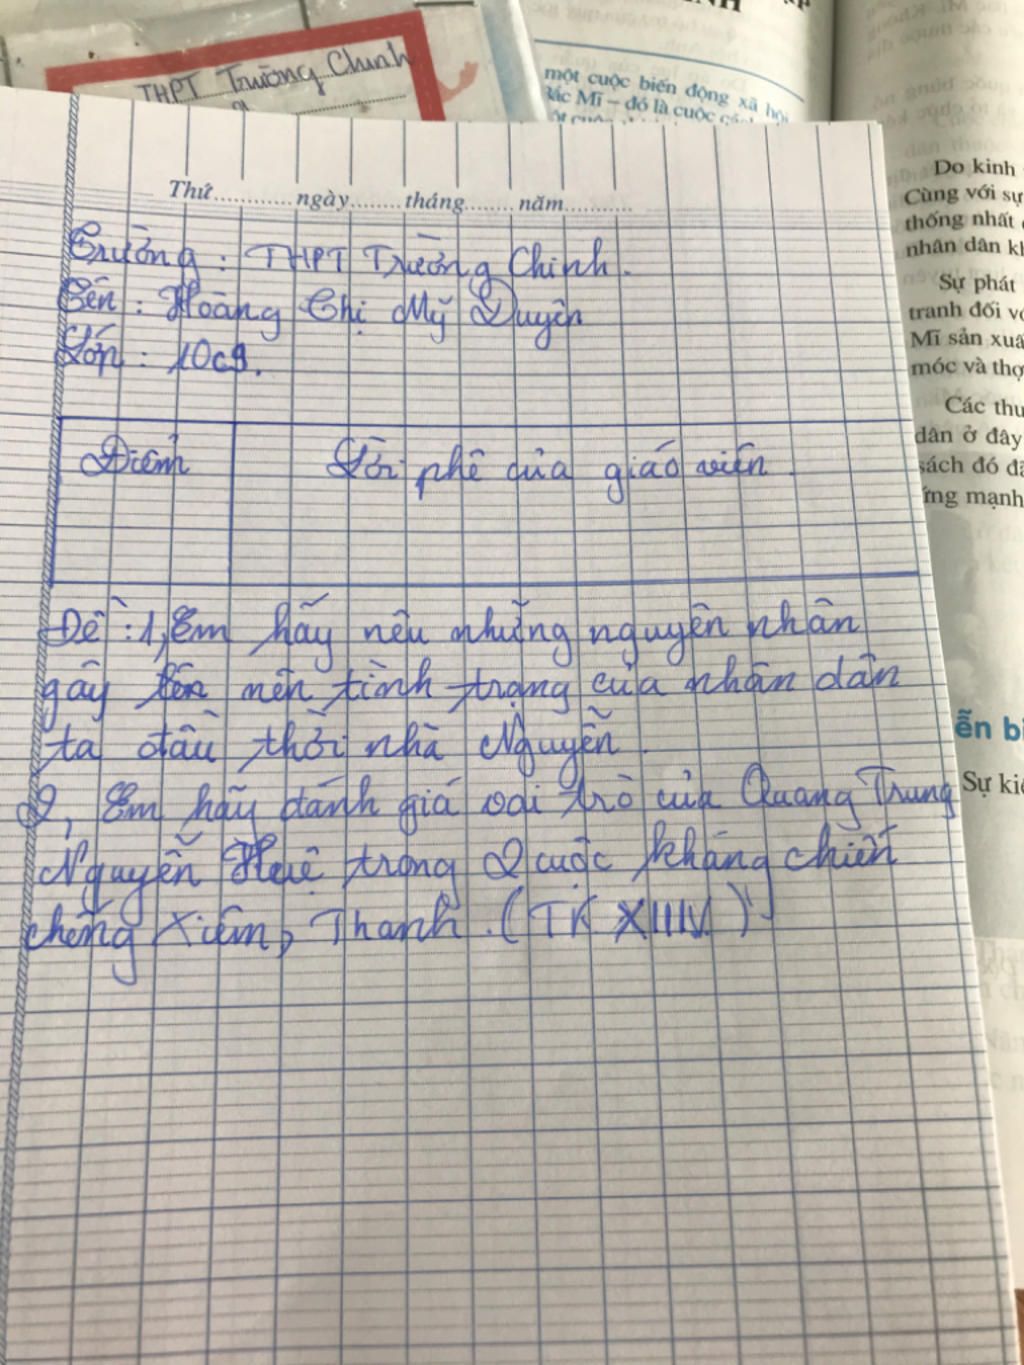 THPT Trường Chinh
một cuộc biến động xã hội
Bắc Mĩ – đó là cuộc
Thứ............ngày........tháng.......năm..........
Trường : THPT Trường Chinh.
Tên : Hoàng Thị Mỹ Duyên
Lớp : 10c9.
Điểm
Lời phê của giáo viên.
Đề : 1, Em hãy nêu những nguyên nhân
gây nên tình trạng của nhân dân
ta đầu thời nhà Nguyễn.
2, Em hãy đánh giá vai trò của Quang Trung
Nguyễn Huệ trong 2 cuộc kháng chiến
chống Xiêm, Thanh. (TK XIIIV)
Do kinh
Cùng với sự
thống nhất
nhân dân
Sự phát
tranh đối
Mĩ sản xuấ
móc và thợ
Các thu
dân ở đây
sách đó
ứng mạnh
ễn bi
Sự kiệ